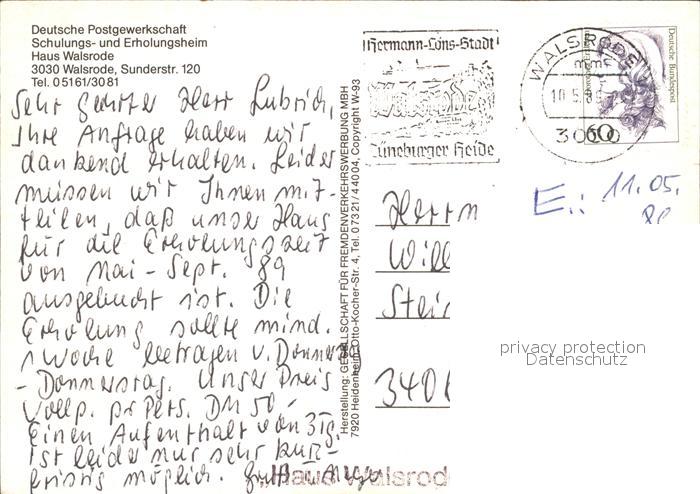 Deutsche Postgewerkschaft
Schulungs- und Erholungsheim
Haus Walsrode
3030 Walsrode, Sunderstr. 120
Tel. 05161/3081
Sehr geehrter Herr Lubrich,
Ihre Anfrage haben wir
dankend erhalten. Leider
müssen wir Ihnen mit-
teilen, daß unser Haus
für die Erholungszeit
von Mai - Sept. 89
ausgebucht ist. Die
Erholung sollte mind.
1 Woche betragen v. Donnerstag
- Donnerstag. Unser Preis
Vollp. pr Pers. DM 50,-
Einen Aufenthalt von 3 Tg.
ist leider nur sehr kurz-
fristig möglich. Gruß
Haus Walsrode
Herstellung: GESELLSCHAFT FÜR FREMDENVERKEHRSWERBUNG MBH
7920 Heidenheim, Otto-Kocher-Str. 4, Tel. 07321/44004, Copyright W-93
Hermann-Löns-Stadt
Walsrode
Lüneburger Heide
WALSRODE
10.5.
3030
Deutsche Bundespost
60
E.: 11.05.
Herrn
Will
Stein
340
privacy protection
Datenschutz